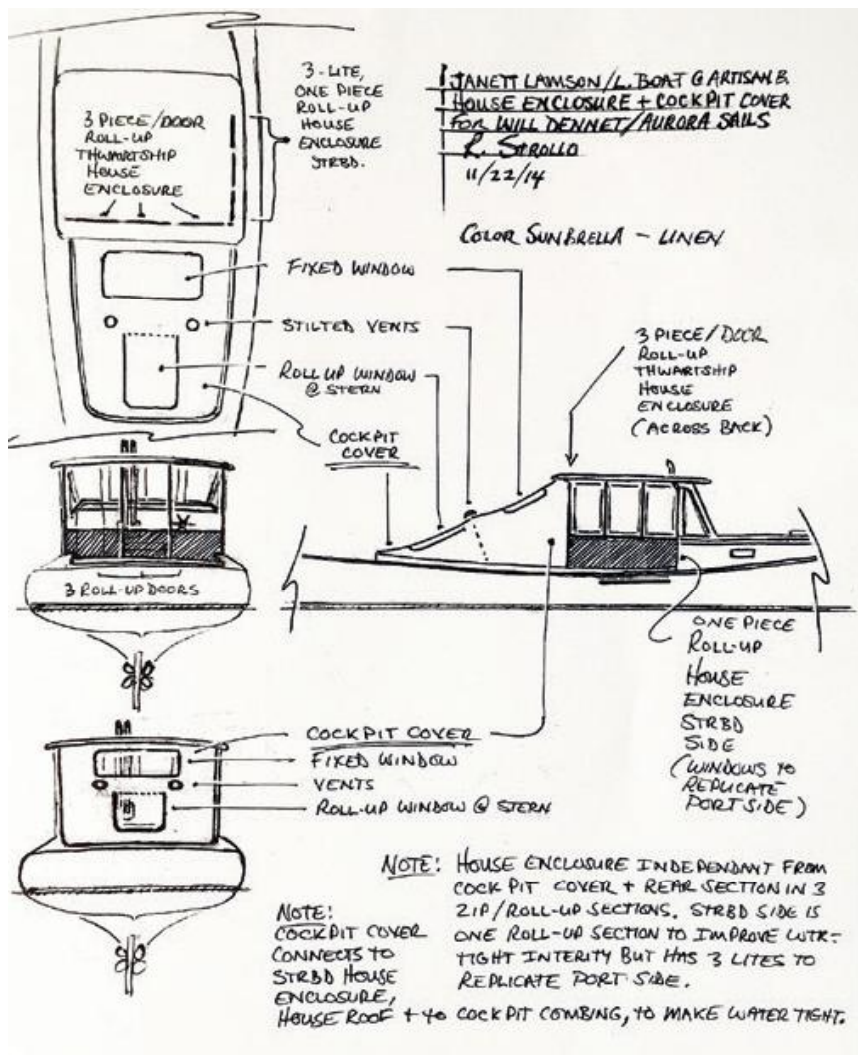 3-LITE,
ONE PIECE
ROLL-UP
HOUSE
ENCLOSURE
STRBD.
3 PIECE/DOOR
ROLL-UP
THWARTSHIP
HOUSE
ENCLOSURE
JANETT LAMSON/L. BOAT G ARTISAN B.
HOUSE ENCLOSURE + COCKPIT COVER
FOR WILL DENNET/AURORA SAILS
R. STROLLO
11/22/14
COLOR SUNBRELLA - LINEN
FIXED WINDOW
STILTED VENTS
ROLL UP WINDOW
@ STERN
COCKPIT
COVER
3 PIECE/DOOR
ROLL-UP
THWARTSHIP
HOUSE
ENCLOSURE
(ACROSS BACK)
3 ROLL-UP DOORS
ONE PIECE
ROLL-UP
HOUSE
ENCLOSURE
STRBD
SIDE
(WINDOWS TO
REPLICATE
PORT SIDE)
COCKPIT COVER
FIXED WINDOW
VENTS
ROLL-UP WINDOW @ STERN
NOTE: HOUSE ENCLOSURE INDEPENDANT FROM
COCK PIT COVER + REAR SECTION IN 3
ZIP/ROLL-UP SECTIONS. STRBD SIDE IS
ONE ROLL-UP SECTION TO IMPROVE WTR-
TIGHT INTERITY BUT HAS 3 LITES TO
REPLICATE PORT SIDE.
NOTE:
COCKPIT COVER
CONNECTS TO
STRBD HOUSE
ENCLOSURE,
HOUSE ROOF + TO COCKPIT COMBING, TO MAKE WATER TIGHT.